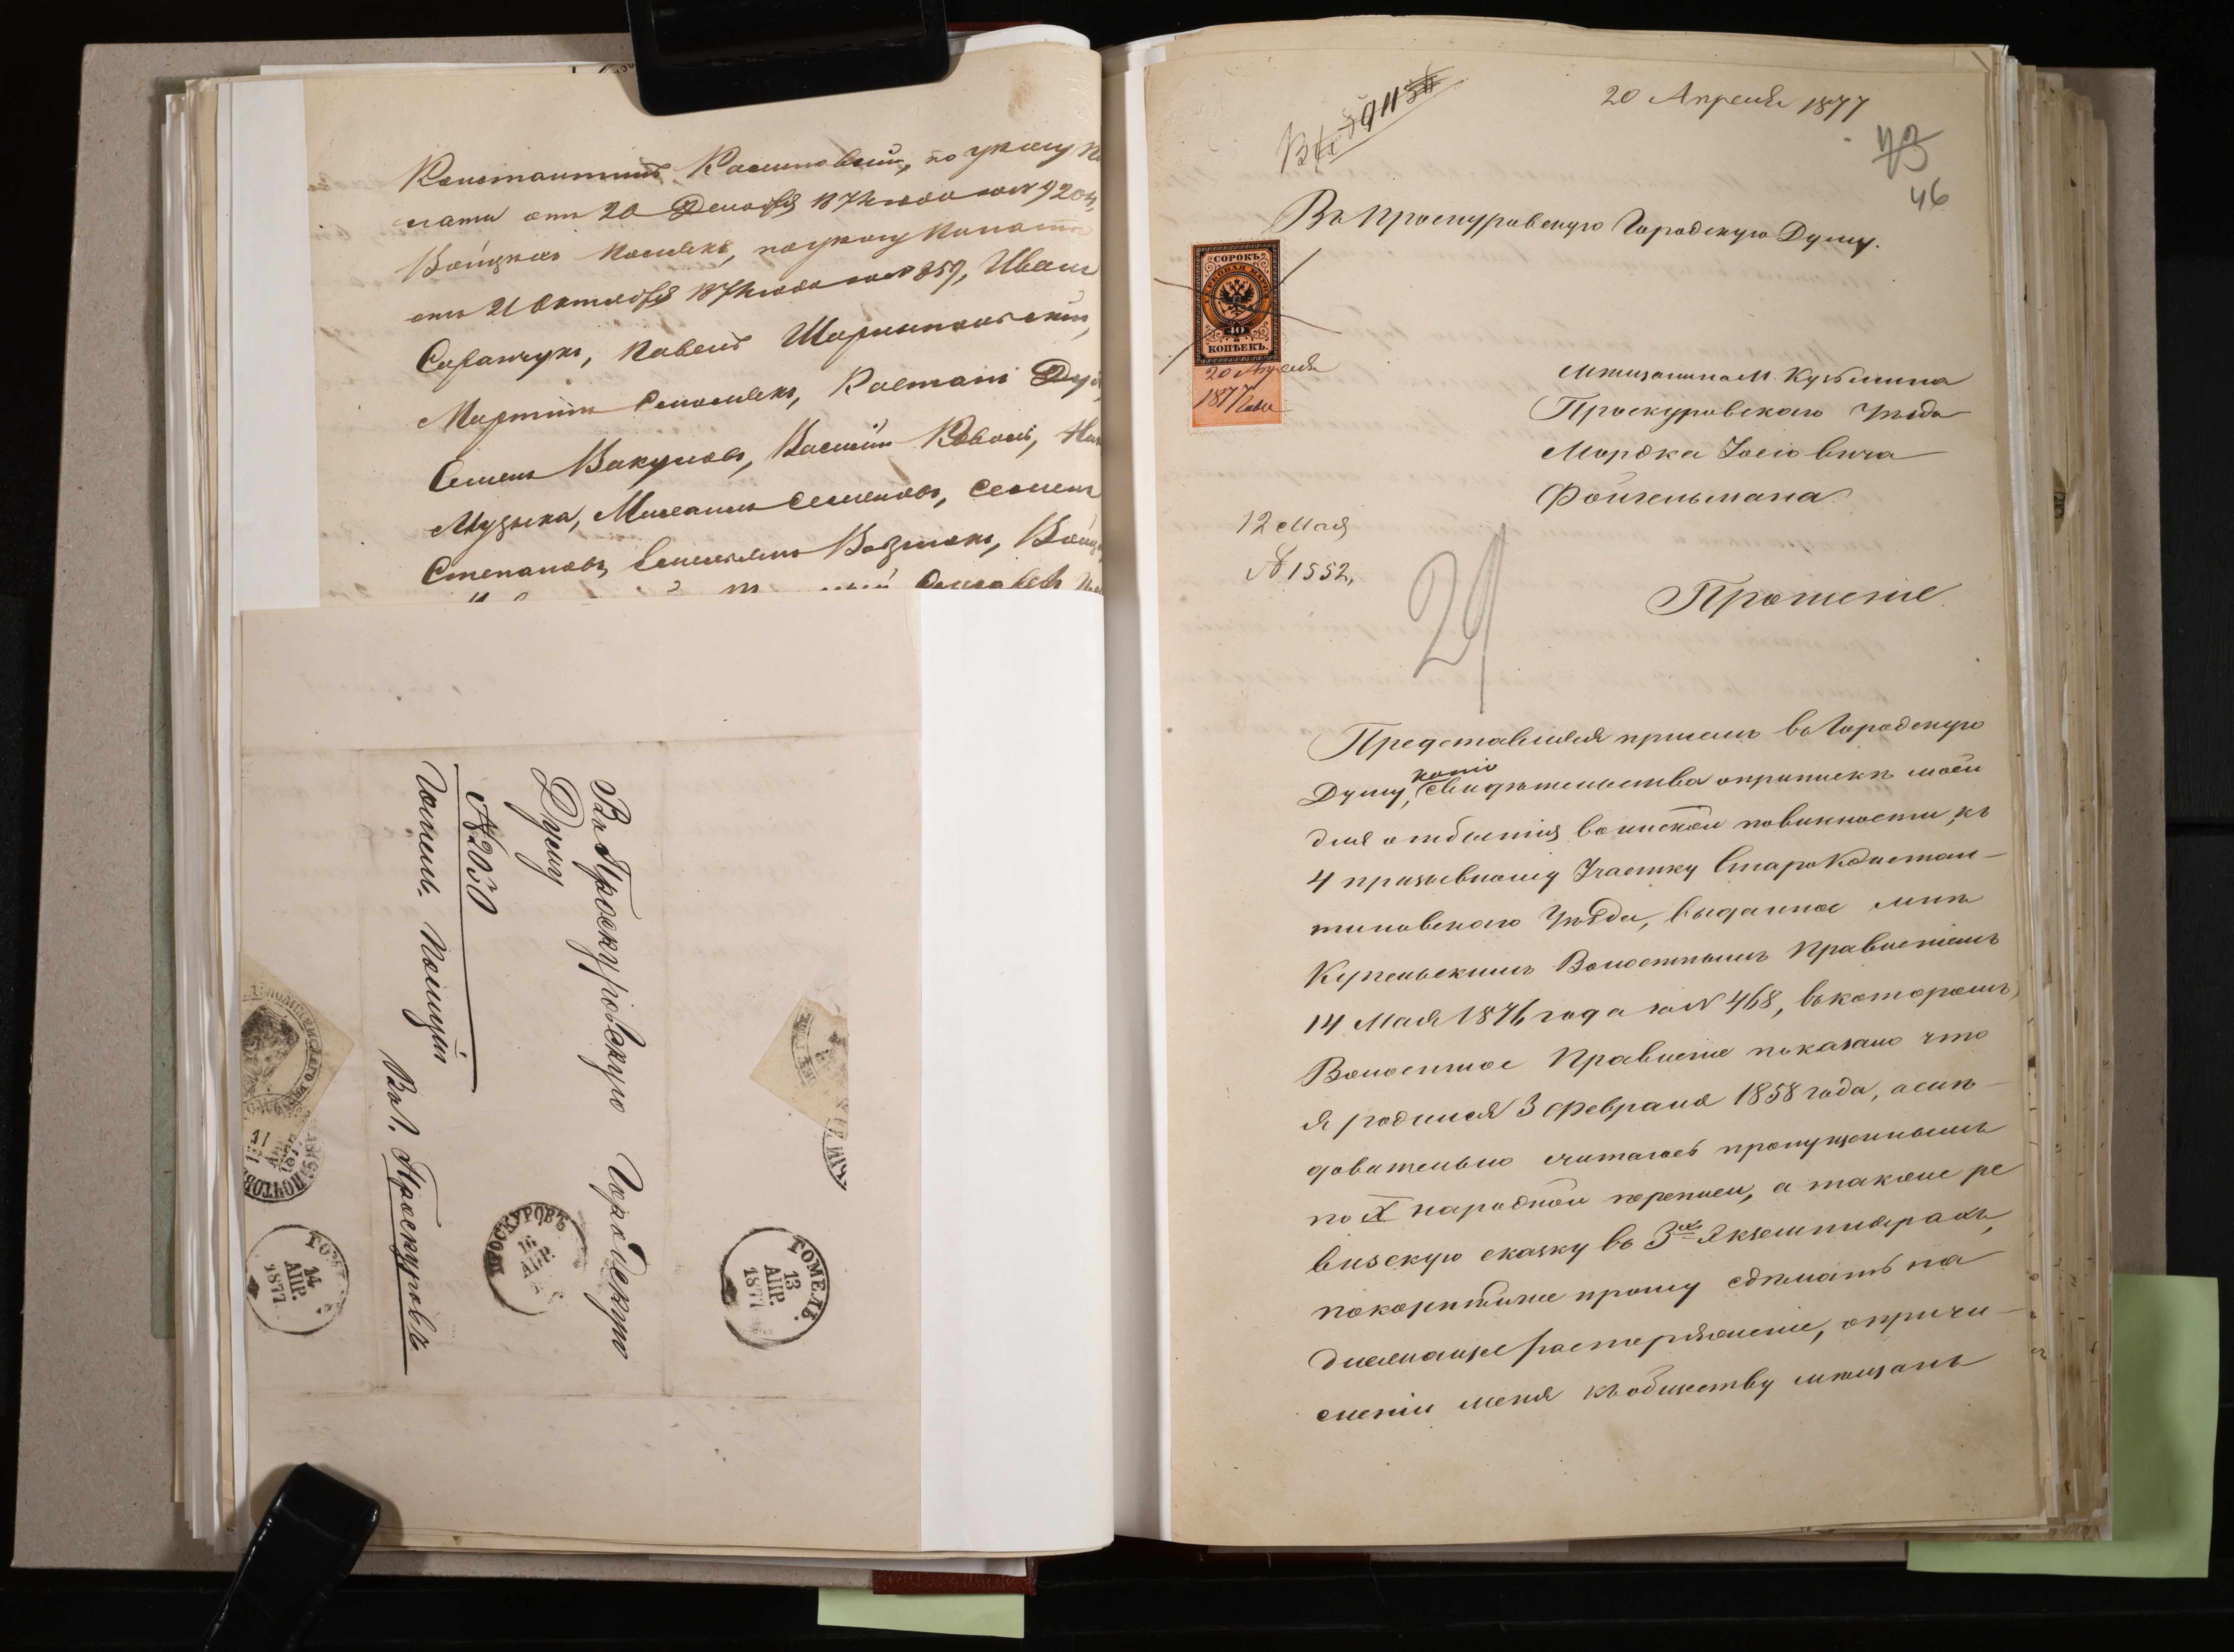 Константинъ Расиновскій, по указу По
латы отъ 20 Декабря 187 года за № 9204,
Войцехъ Полякъ, по указу Палаты
отъ 21 Октября 187 года за № 859, Иванъ
Сафанчукъ, Павелъ
Мартинъ Касттанъ
Семенъ Вакуловъ, Василій Коваль,
Музыка, Михаилъ Семеновъ, Семенъ
Степановъ,
Въ Проскуровскую Городскую
Думу
№ 2050
Гомел. Полиціи
Въ Г. Проскуровъ
ГОМЕЛЬ.
13
АПР.
1877
ПРОСКУРОВЪ
16
АПР.
14
АПР.
1877
20 Апреля 1877
46
Въ Проскуровскую Городскую Думу.
СОРОКЪ
ГЕРБОВАЯ МАРКА
40
КОПѢЕКЪ.
20 Апреля
1877 года
Мѣщанина М. Кузьмина
Проскуровскаго Уѣзда
Мордка Іосіовича
Фойгельмана
12 Мая
№ 1552,
29
Прошеніе
Представляя присемъ въ Городскую
Думу, копію свидѣтельства о припискѣ моей
для отбытія воинской повинности, къ
4 призывному Участку Старокостан-
тиновскаго Уѣзда, выданное мнѣ
Купельскимъ Волостнымъ Правленіемъ
14 Мая 1876 года за № 468, въ которомъ
Волостное Правленіе показано что
я родился 3 февраля 1858 года, а слѣ-
довательно считаюсь пропущеннымъ
по X народной переписи, а также ре
визскую сказку въ 3хъ Экземплярахъ,
покорнѣйше прошу сдѣлать на
длежащее распоряженіе, о причи-
сленіи меня къ обществу мѣщанъ